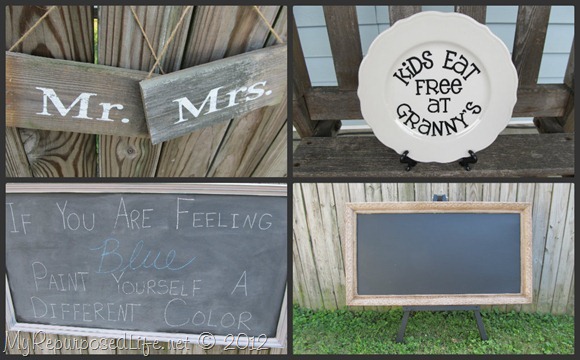 Mr.
Mrs.
KiDS EAT
FREE
AT
GRANNY'S
IF YOU ARE FEELING
Blue
PAINT YOURSELF A
DIFFERENT COLOR
MyRepurposedLife.net © 2012